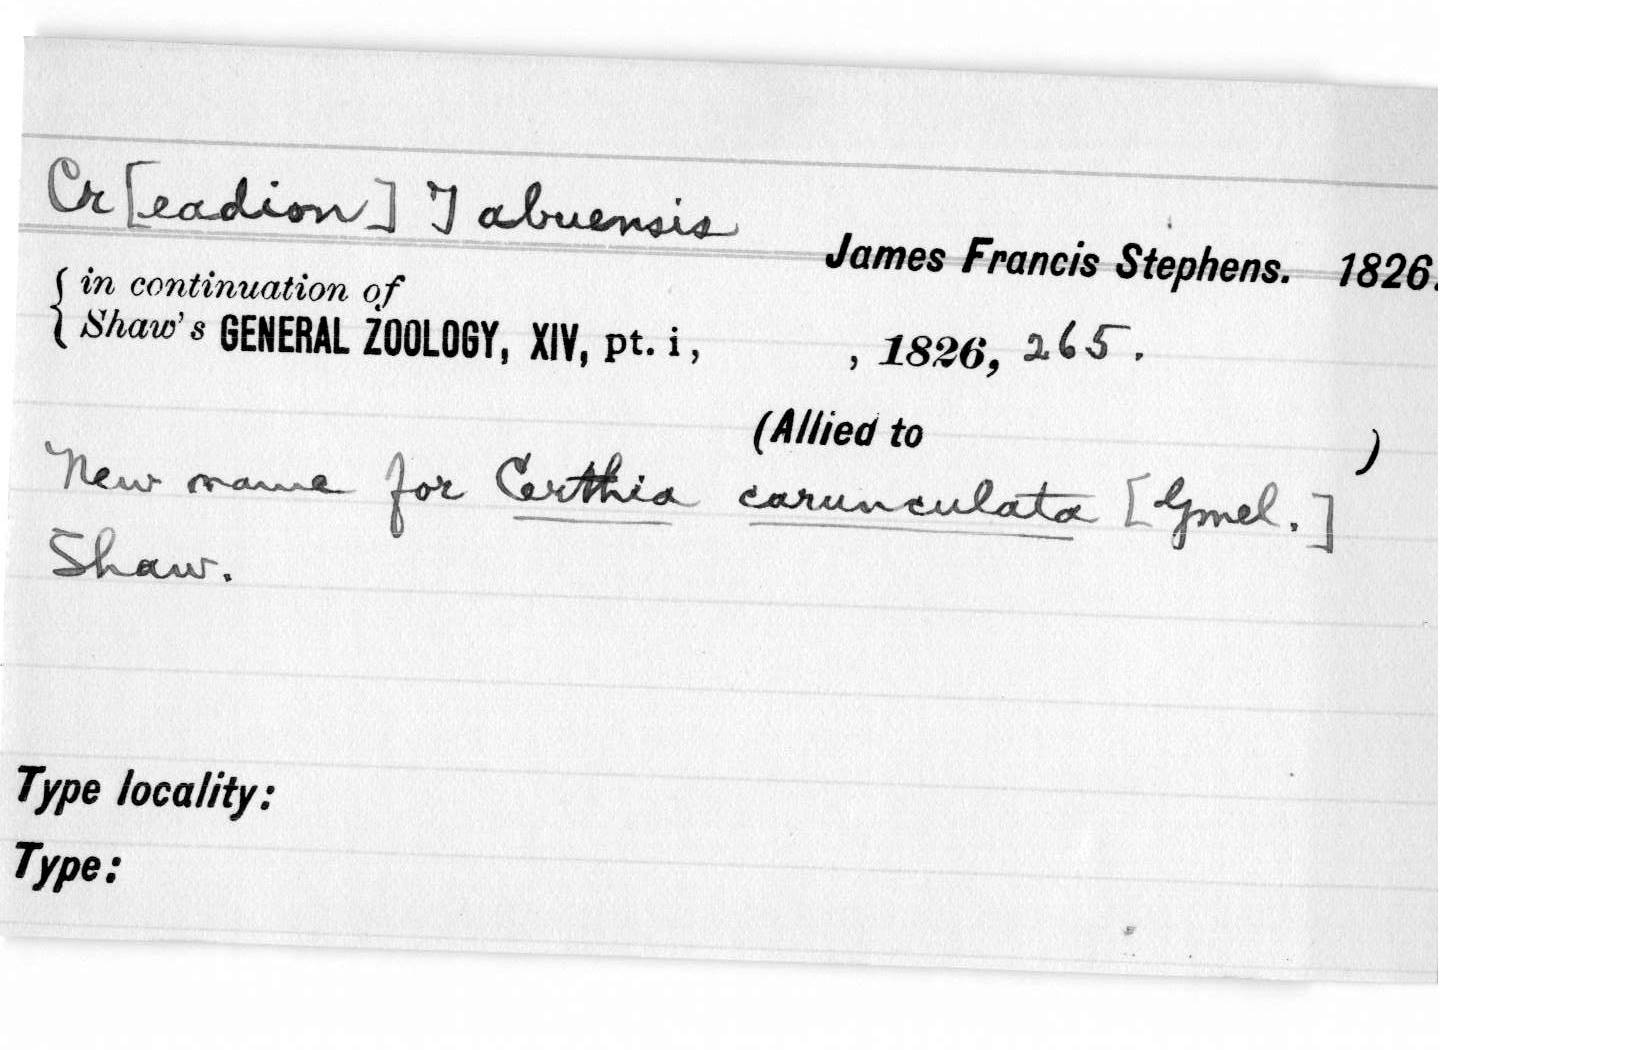 Cr[eadion] Tabuensis
James Francis Stephens. 1826.
{ in continuation of
{ Shaw's GENERAL ZOOLOGY, XIV, pt. i, , 1826, 265.
(Allied to )
New name for Certhia carunculata [Gmel.]
Shaw.
Type locality:
Type: